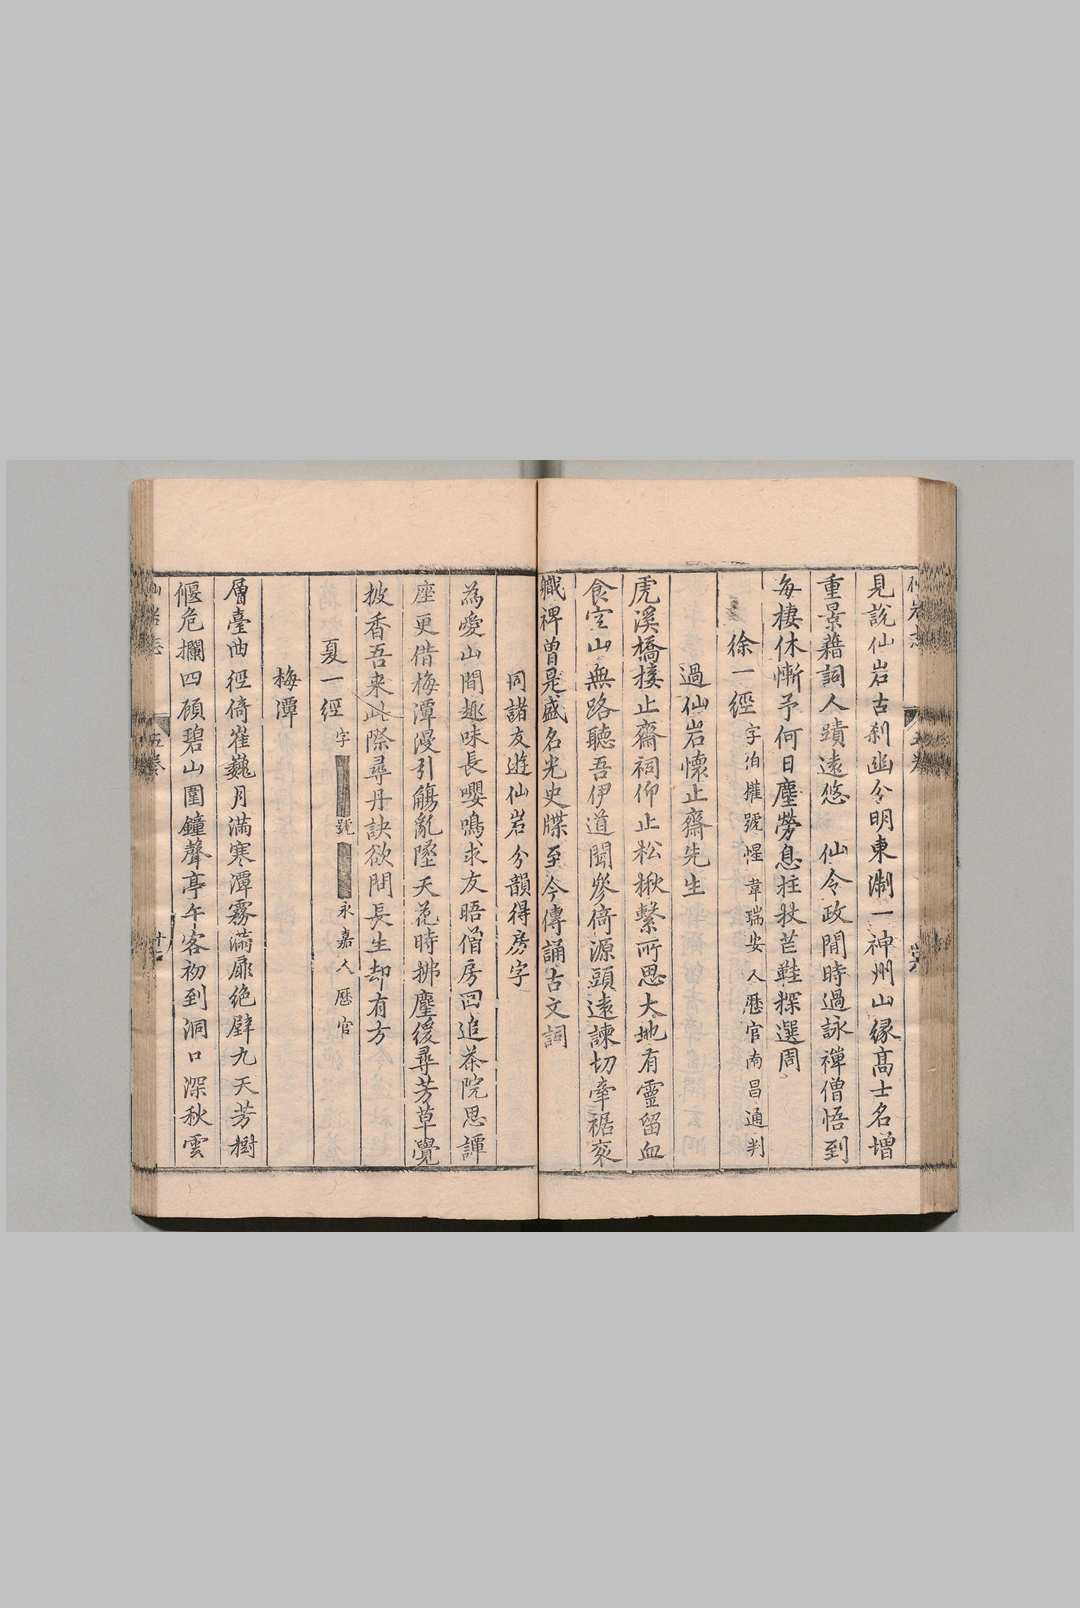 見說仙岩古刹幽分明東淛一神州山縁高士名增
重景藉詞人蹟遠悠　仙令政閒時過詠禪僧悟到
每棲休慚予何日塵勞息拄杖芒鞋探選周
徐一經字伯㩲號惺韋瑞安人歷官南昌通判
過仙岩懷止齋先生
虎溪橋接止齋祠仰止松楸繫所思大地有靈留血
食空山無路聽吾伊道聞參倚源頭遠諫切牽裾袞
職裨曽是盛名光史牒至今傳誦古文詞
同諸友遊仙岩分韻得房字
為愛山間趣味長嚶鳴求友晤僧房回追茶院思譚
座更借梅潭漫引觴亂墜天花時拂塵緩尋芳草覺
披香吾来此際尋丹訣欲問長生却有方
夏一經字號永嘉人歷官
梅潭
層臺曲徑倚崔巍月滿寒潭霧滿扉絶壁九天芳樹
偃危欄四顧碧山圍鐘聲亭午客初到洞口深秋雲
仙岩志
五卷